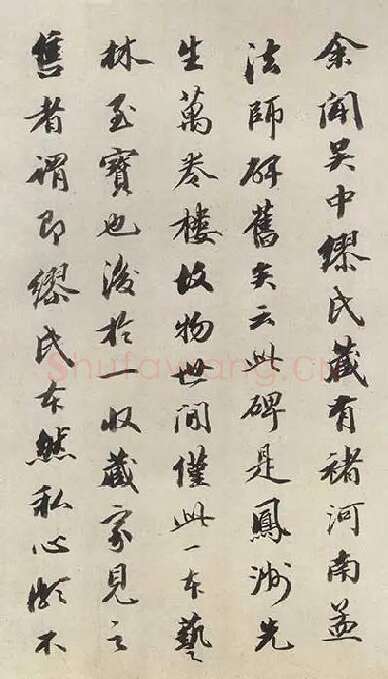 余聞吴中繆氏藏有褚河南孟
法師碑舊矣云此碑是鳳洲先
生萬卷樓故物世間僅此一本藝
林至寶也後於一收藏家見之
售者謂即繆氏本然私心頗不
shufawang.cn